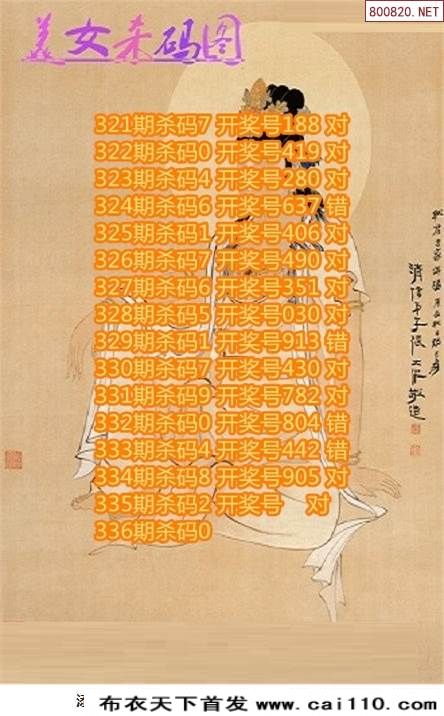 800820.NET
美女杀码图
321期杀码7 开奖号188 对
322期杀码0 开奖号419 对
323期杀码4 开奖号280 对
324期杀码6 开奖号637 错
325期杀码1 开奖号406 对
326期杀码7 开奖号490 对
327期杀码6 开奖号351 对
328期杀码5 开奖号030 对
329期杀码1 开奖号913 错
330期杀码7 开奖号430 对
331期杀码9 开奖号782 对
332期杀码0 开奖号804 错
333期杀码4 开奖号442 错
334期杀码8 开奖号905 对
335期杀码2 开奖号 对
336期杀码0
布衣天下首发 www.cai110.com